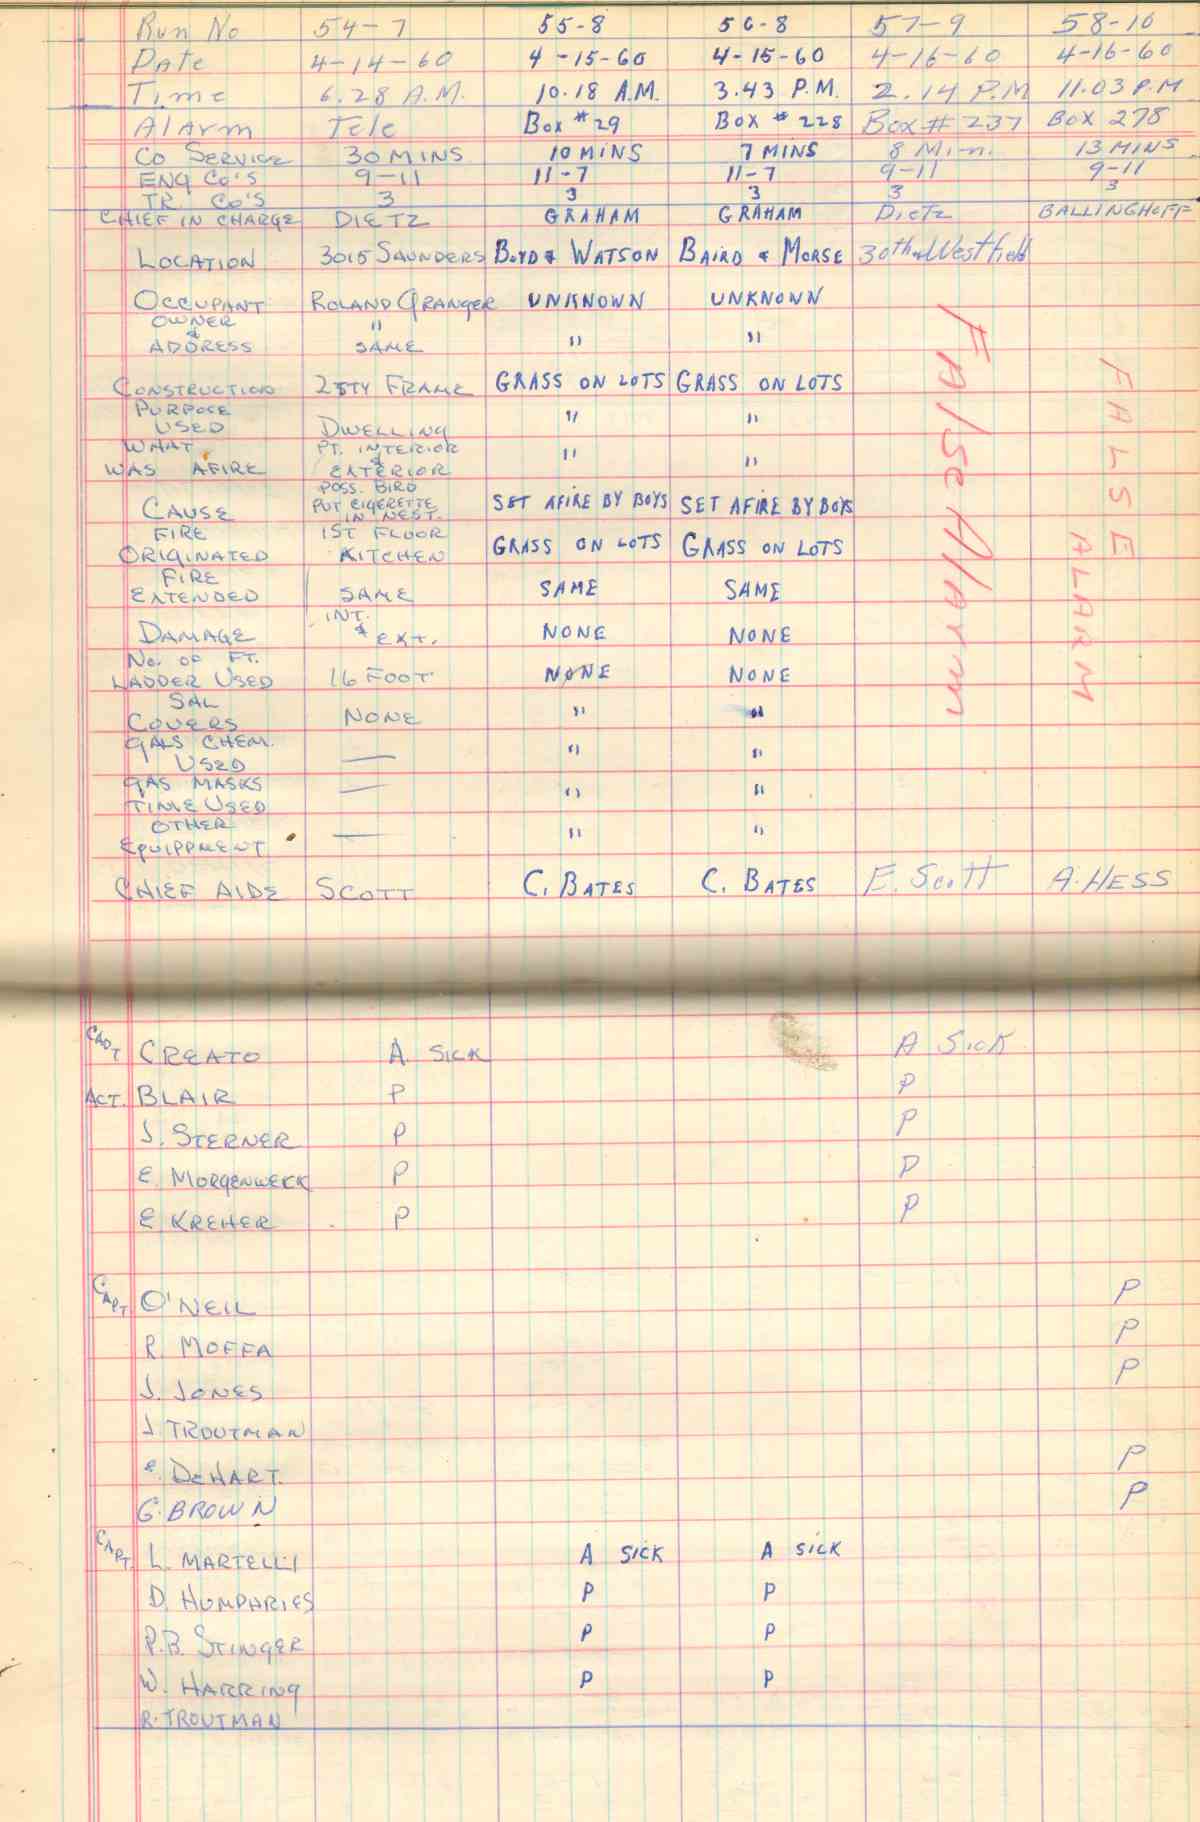 Run No 54-7 55-8 56-8 57-9 58-10
Date 4-14-60 4-15-60 4-15-60 4-16-60 4-16-60
Time 6.28 A.M. 10.18 A.M. 3.43 P.M. 2.14 P.M 11.03 P.M
Alarm Tele Box #29 Box # 228 Box # 237 Box 278
Co Service 30 MINS 10 MINS 7 MINS 8 Min. 13 MINS
ENG Co's 9-11 11-7 11-7 9-11 9-11
TR. Co's 3 3 3 3 3
CHIEF IN CHARGE DIETZ GRAHAM GRAHAM Dietz BALLINGHOFF
LOCATION 3015 SAUNDERS BOYD & WATSON BAIRD & MORSE 30th & Westfield
OCCUPANT ROLAND GRANGER UNKNOWN UNKNOWN
OWNER "
&
ADDRESS SAME " "
CONSTRUCTION 2 STY FRAME GRASS ON LOTS GRASS ON LOTS
PURPOSE
USED DWELLING " "
WHAT PT. INTERIOR
&
WAS AFIRE EXTERIOR " "
POSS. BIRD
CAUSE PUT CIGERETTE SET AFIRE BY BOYS SET AFIRE BY BOYS
IN NEST.
FIRE 1ST FLOOR
ORIGINATED KITCHEN GRASS ON LOTS GRASS ON LOTS
FIRE
EXTENDED SAME SAME SAME
INT.
DAMAGE & EXT. NONE NONE
No. OF FT.
LADDER USED 16 FOOT NONE NONE
SAL
COVERS NONE " "
GALS CHEM.
USED — " "
GAS MASKS —
TIME USED " "
OTHER —
EQUIPPMENT " "
CHIEF AIDE SCOTT C. BATES C. BATES E. Scott A. HESS
False Alarm
FALSE
ALARM
CAPT CREATO A SICK A Sick
ACT. BLAIR P P
J. STERNER P P
E. MORGENWECK P P
E KREHER P P
CAPT O'NEIL P
R. MOFFA P
J. JONES P
J TROUTMAN
E. DEHART. P
G. BROWN P
CAPT. L. MARTELLI A SICK A SICK
D. HUMPHRIES P P
P.B. STINGER P P
W. HARRING P P
R. TROUTMAN